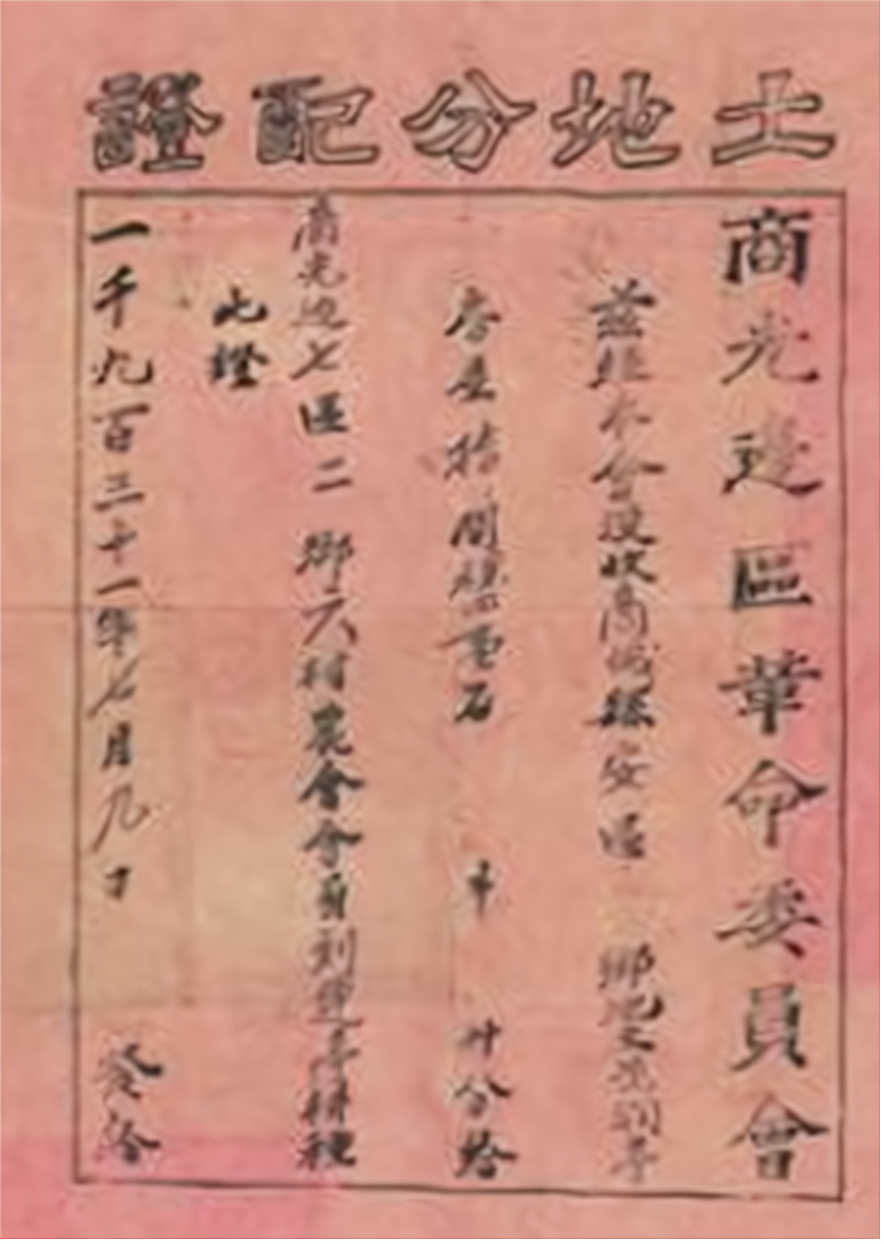 土地分配證
商光邊區革命委員會
茲經本會沒收商城縣安區 鄉地
房屋 間 石 斗 升分給
商光边七區二鄉六村農會會員刘 耕種
此證
一千九百三十一年七月九日 發給